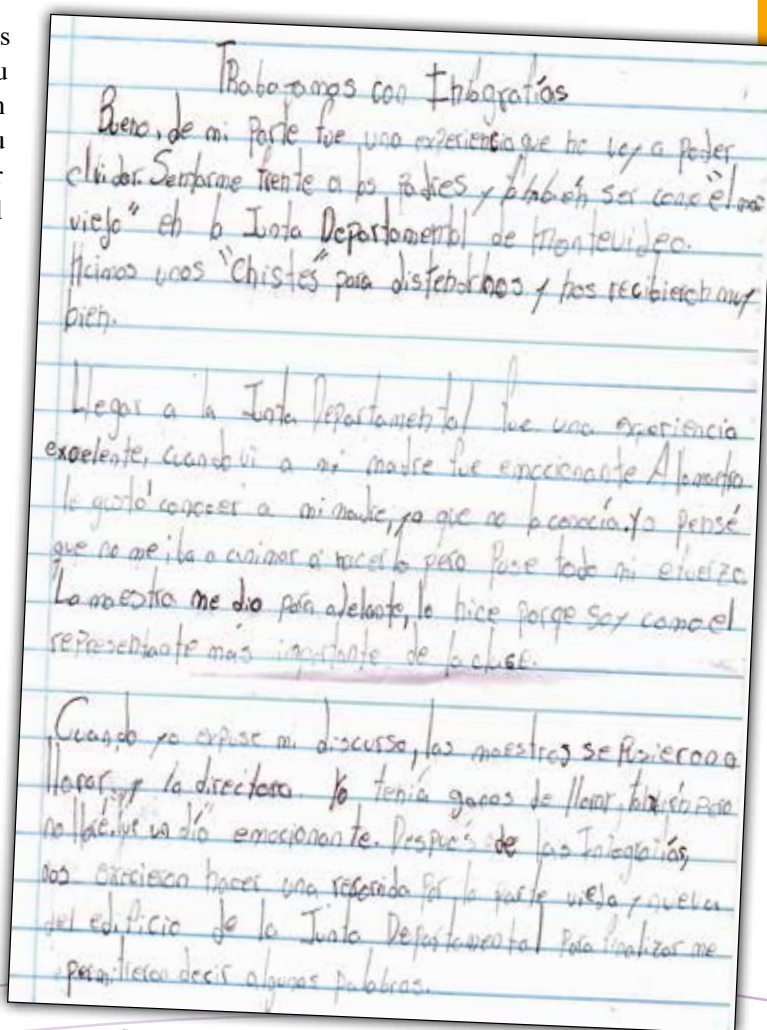 s
u
n
u
r
l
Trabajamos con Integratías
Bueno, de mi parte fue una experiencia que no voy a poder
olvidar. Sentarme frente a los Padres y también ser como "el más
viejo" en la Junta Departamental de Montevideo.
Hicimos unos "Chistes" para distendernos y nos recibieron muy
bien.
Llegar a la Junta Departamental fue una experiencia
exelente, cuando vi a mi madre fue emocionante A la maestra
le gustó conocer a mi madre, ya que no la conocía. Yo Pensé
que no me iba a animar a hacerlo pero Puse todo mi efuerzo.
La maestra me dio para adelante, lo hice Porqe soy como el
representante más importante de la clase.
Cuando yo expuse mi discurso, las maestras se Pusieron a
llorar, y la directora. Yo tenía ganas de llorar, también pero
no lloré, fue un día emocionante. Después de las Integratías,
nos ofrecieron hacer una recorrida Por la parte vieja y nueva
del edificio de la Junta Departamental Para finalizar me
permitieron decir algunas palabras.